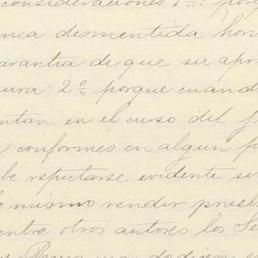 consideraciones 1ª: porq
nca desmentida hon
arantia de que su apr
ura: 2º, porque cuand
ntan en el curso del j
conformes en algun p
be reputarse evidente si
mismo rendir prueb
entre otros autores los Se